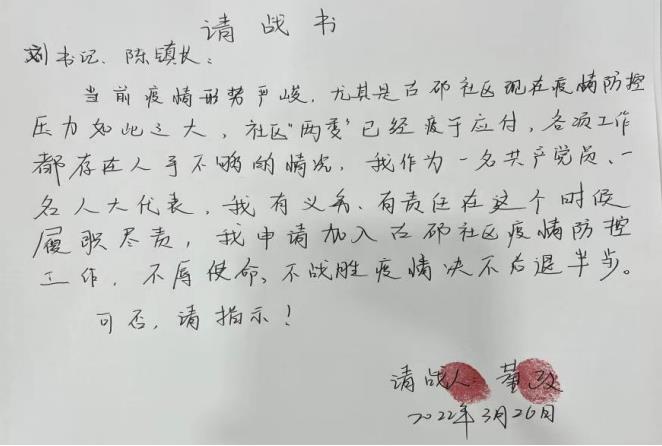 请战书
刘书记、陈镇长：
当前疫情形势严峻，尤其是古邵社区现在疫情防控
压力如此之大，社区“两委”已经疲于应付，各项工作
都存在人手不够的情况，我作为一名共产党员、一
名人大代表，我有义务、有责任在这个时候
履职尽责，我申请加入古邵社区疫情防控
工作，不辱使命、不战胜疫情决不后退半步。
可否，请指示！
请战人：董
2022年3月26日